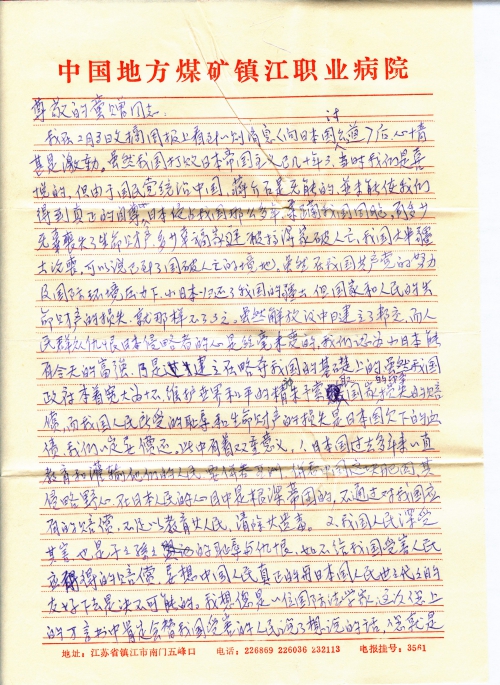 中国地方煤矿镇江职业病院
尊敬的童增同志:
我在2月3日文摘周报上看到 消息《向日本国 讨 公道》后心情
甚是激动。虽然我国打败日本帝国主义已几十年了,当时我们是喜
悦的,但由于国民党统治中国,蒋介石是无能的,并未能使我们
得到真正的 。日本侵占我国那么多年, 我国同胞,有多少
无辜丧失了生命财产,多少幸福家庭被搞得家破人亡,我国大半疆
土沦丧,可以说已到了国破人亡的境地。虽然在我国共产党的努力
及国际环境压力下,小日本归还了我国的疆土,但国家和人民的生
命财产的损失,就那样不了了之。虽然解放后中日建立了邦交,而人
民群众仇恨日本侵略者的心是丝毫未变的,我们认为小日本能
有今天的富强, 是建立在略夺我国的基础上的。虽然我国
政府本着宽大为怀,维护世界和平的精神 放弃 国家损失的赔
偿,而我国人民所受的耻辱和生命财产的损失是日本国欠下的血
债,我们一定要偿还。此中有着双重意义,1、日本国过去多年来一直
教育和灌输他们的人民
侵略野心,在日本人民的心目中是根深蒂固的,不通过对我国应
有的赔偿,不足以教育其人民,清除其造孽。2、我国人民深受
其害,也是 的耻辱与仇恨,如不给我国受害人民
应得的赔偿,要想中国人民真正的与日本国人民世世代代的
友好下去是决不可能的。我想您是一位国际法学家,这次送上
的万言书中肯定会替我国受害的人民说了想说的话,您就是
地址:江苏省镇江市南门五峰口 电话:226869 226036 232113 电报挂号:3561